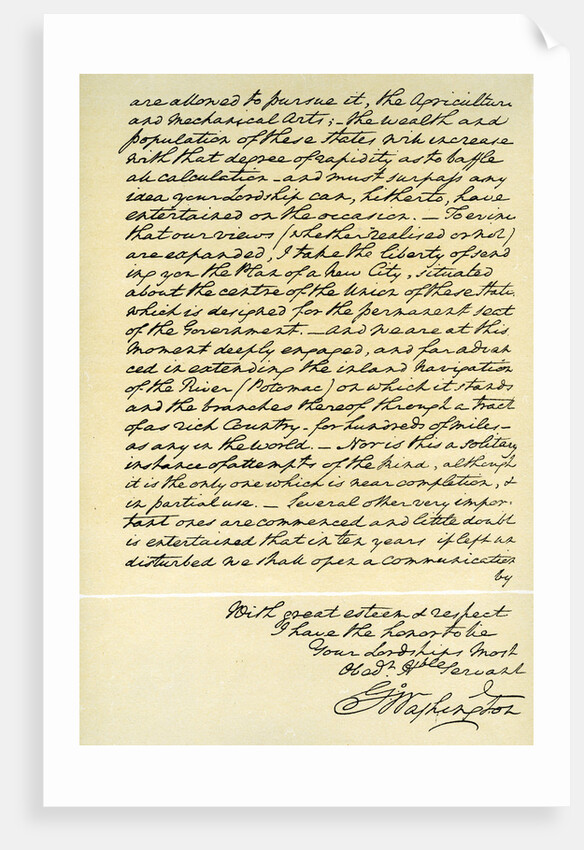 are allowed to pursue it, the Agriculture
and Mechanical Arts; – the wealth and
population of these States will increase
with that degree of rapidity as to baffle
all calculation – and must surpass any
idea your Lordship can, hitherto, have
entertained on the occasion. – To evince
that our views (whether realised or not)
are expanded, I take the liberty of send
ing you the Plan of a New City, situated
about the centre of the Union of these States
which is designed for the permanent seat
of the Government. – And we are at this
moment deeply engaged, and far advan
ced in extending the inland Navigation
of the River (Potomac) on which it stands
and the branches thereof through a tract
of as rich Country – for hundreds of miles –
as any in the world. – Nor is this a solitary
instance of attempts of the kind, although
it is the only one which is near completion, &
in partial use. – Several other very impor-
tant ones are commenced and little doubt
is entertained that in ten years if left un
disturbed we shall open a communication
by
With great esteem & respect
I have the honor to be
Your Lordships Most
Obedt Hble Servant
Go Washington